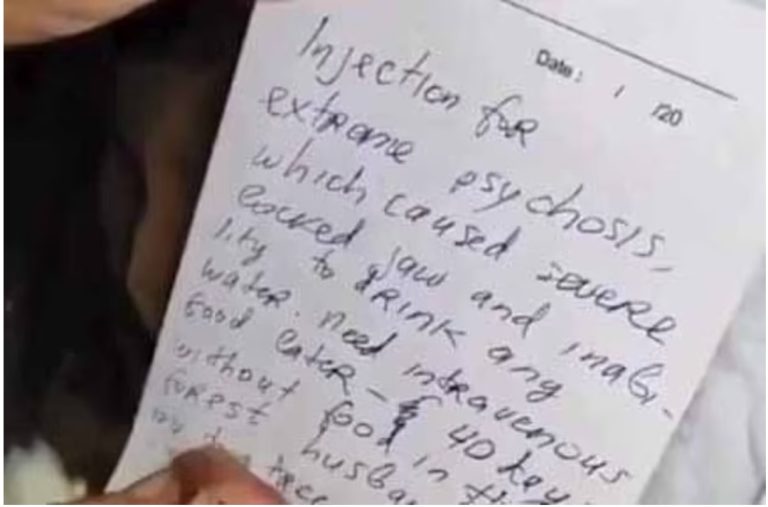 Date: / /20
Injection for
extreme psychosis,
which caused severe
locked jaw and inabi-
lity to drink any
water. Need intravenous
food later - 40 days
without food in the
forest husba